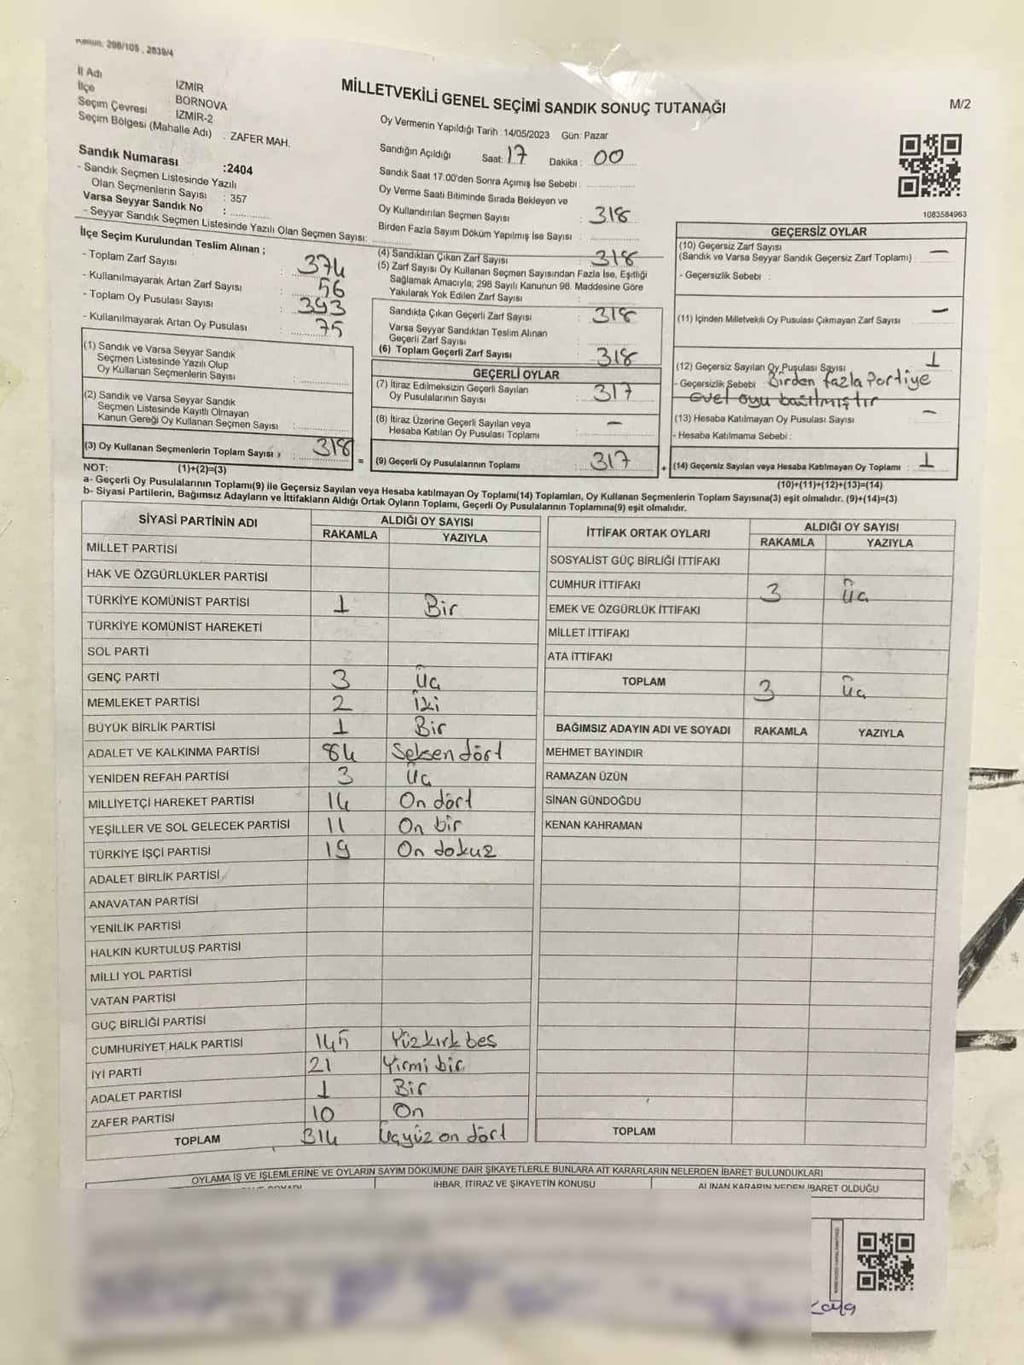 Kanun: 298/105 , 2839/4
İl Adı İZMİR
İlçe BORNOVA
Seçim Çevresi İZMİR-2
Seçim Bölgesi (Mahalle Adı) : ZAFER MAH.
MİLLETVEKİLİ GENEL SEÇİMİ SANDIK SONUÇ TUTANAĞI
M/2
Oy Vermenin Yapıldığı Tarih : 14/05/2023 Gün: Pazar
Sandığın Açıldığı Saat: 17 Dakika : 00
Sandık Saat 17.00'den Sonra Açımış İse Sebebi :
Oy Verme Saati Bitiminde Sırada Bekleyen ve
Oy Kullandırılan Seçmen Sayısı : 318
Birden Fazla Sayım Döküm Yapılmış İse Sayısı :
1083584963
Sandık Numarası :2404
- Sandık Seçmen Listesinde Yazılı
Olan Seçmenlerin Sayısı : 357
Varsa Seyyar Sandık No :
- Seyyar Sandık Seçmen Listesinde Yazılı Olan Seçmen Sayısı:
İlçe Seçim Kurulundan Teslim Alınan ;
- Toplam Zarf Sayısı : 374
- Kullanılmayarak Artan Zarf Sayısı : 56
- Toplam Oy Pusulası Sayısı : 393
- Kullanılmayarak Artan Oy Pusulası : 75
(1) Sandık ve Varsa Seyyar Sandık
Seçmen Listesinde Yazılı Olup
Oy Kullanan Seçmenlerin Sayısı :
(2) Sandık ve Varsa Seyyar Sandık
Seçmen Listesinde Kayıtlı Olmayan
Kanun Gereği Oy Kullanan Seçmen Sayısı :
(3) Oy Kullanan Seçmenlerin Toplam Sayısı : 318
(4) Sandıktan Çıkan Zarf Sayısı : 318
(5) Zarf Sayısı Oy Kullanan Seçmen Sayısından Fazla İse, Eşitliği
Sağlamak Amacıyla; 298 Sayılı Kanunun 98. Maddesine Göre
Yakılarak Yok Edilen Zarf Sayısı :
Sandıkta Çıkan Geçerli Zarf Sayısı : 318
Varsa Seyyar Sandıktan Teslim Alınan
Geçerli Zarf Sayısı :
(6) Toplam Geçerli Zarf Sayısı : 318
GEÇERLİ OYLAR
(7) İtiraz Edilmeksizin Geçerli Sayılan
Oy Pusulalarının Sayısı : 317
(8) İtiraz Üzerine Geçerli Sayılan veya
Hesaba Katılan Oy Pusulası Toplamı : –
= (9) Geçerli Oy Pusulalarının Toplamı : 317
GEÇERSİZ OYLAR
(10) Geçersiz Zarf Sayısı
(Sandık ve Varsa Seyyar Sandık Geçersiz Zarf Toplamı) : –
- Geçersizlik Sebebi :
(11) İçinden Milletvekili Oy Pusulası Çıkmayan Zarf Sayısı : –
(12) Geçersiz Sayılan Oy Pusulası Sayısı : 1
- Geçersizlik Sebebi : Birden fazla Partiye
evet oyu basılmıştır
(13) Hesaba Katılmayan Oy Pusulası Sayısı : –
- Hesaba Katılmama Sebebi :
+ (14) Geçersiz Sayılan veya Hesaba Katılmayan Oy Toplamı : 1
NOT: (1)+(2)=(3)
(10)+(11)+(12)+(13)=(14)
a- Geçerli Oy Pusulalarının Toplamı(9) ile Geçersiz Sayılan veya Hesaba katılmayan Oy Toplamı(14) Toplamları, Oy Kullanan Seçmenlerin Toplam Sayısına(3) eşit olmalıdır. (9)+(14)=(3)
b- Siyasi Partilerin, Bağımsız Adayların ve İttifakların Aldığı Ortak Oyların Toplamı, Geçerli Oy Pusulalarının Toplamına(9) eşit olmalıdır.
SİYASİ PARTİNİN ADI ALDIĞI OY SAYISI
RAKAMLA YAZIYLA
MİLLET PARTİSİ
HAK VE ÖZGÜRLÜKLER PARTİSİ
TÜRKİYE KOMÜNİST PARTİSİ 1 Bir
TÜRKİYE KOMÜNİST HAREKETİ
SOL PARTİ
GENÇ PARTİ 3 Üç
MEMLEKET PARTİSİ 2 İki
BÜYÜK BİRLİK PARTİSİ 1 Bir
ADALET VE KALKINMA PARTİSİ 84 Seksen dört
YENİDEN REFAH PARTİSİ 3 Üç
MİLLİYETÇİ HAREKET PARTİSİ 14 On dört
YEŞİLLER VE SOL GELECEK PARTİSİ 11 On bir
TÜRKİYE İŞÇİ PARTİSİ 19 On dokuz
ADALET BİRLİK PARTİSİ
ANAVATAN PARTİSİ
YENİLİK PARTİSİ
HALKIN KURTULUŞ PARTİSİ
MİLLİ YOL PARTİSİ
VATAN PARTİSİ
GÜÇ BİRLİĞİ PARTİSİ
CUMHURİYET HALK PARTİSİ 145 Yüzkırk beş
İYİ PARTİ 21 Yirmi bir
ADALET PARTİSİ 1 Bir
ZAFER PARTİSİ 10 On
TOPLAM 314 Üçyüz on dört
İTTİFAK ORTAK OYLARI ALDIĞI OY SAYISI
RAKAMLA YAZIYLA
SOSYALİST GÜÇ BİRLİĞİ İTTİFAKI
CUMHUR İTTİFAKI 3 Üç
EMEK VE ÖZGÜRLÜK İTTİFAKI
MİLLET İTTİFAKI
ATA İTTİFAKI
TOPLAM 3 Üç
BAĞIMSIZ ADAYIN ADI VE SOYADI RAKAMLA YAZIYLA
MEHMET BAYINDIR
RAMAZAN ÜZÜN
SİNAN GÜNDOĞDU
KENAN KAHRAMAN
TOPLAM
OYLAMA İŞ VE İŞLEMLERİNE VE OYLARIN SAYIM DÖKÜMÜNE DAİR ŞİKAYETLERLE BUNLARA AİT KARARLARIN NELERDEN İBARET BULUNDUKLARI
İHBAR, İTİRAZ VE ŞİKAYETİN KONUSU
ALINAN KARARIN NEDEN İBARET OLDUĞU